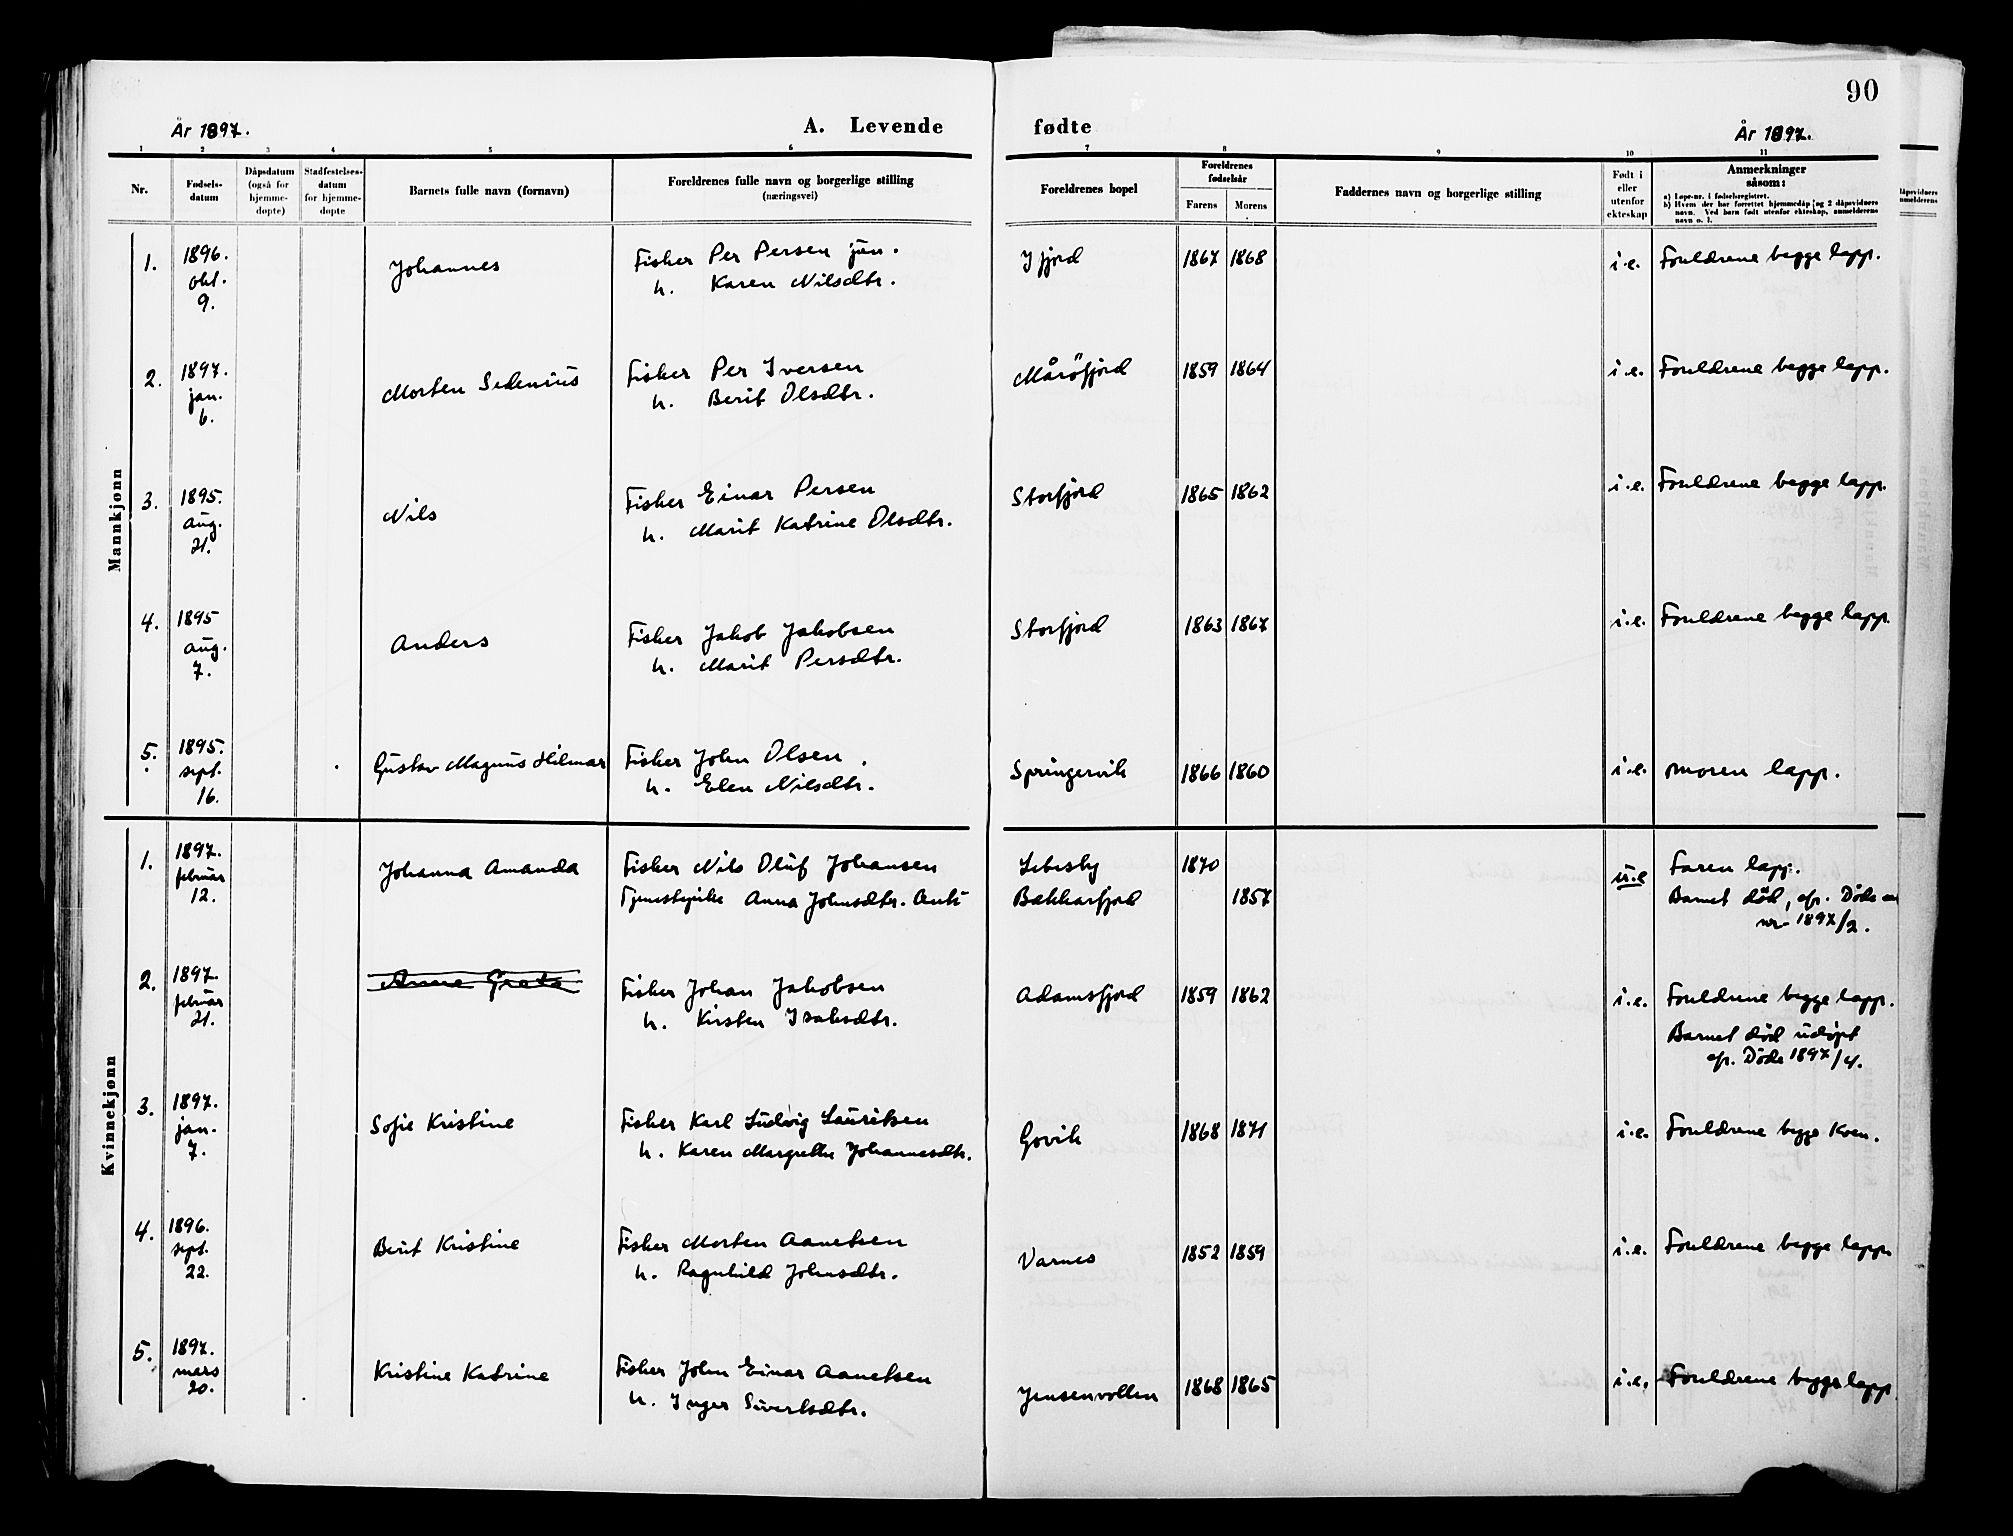 90
År 1897.
A. Levende
fødte
År 1897.
1 2 3 4 5 6 7 8 9 10 11
Nr.
Fødsels-
datum
Dåpsdatum
(også for
hjemme-
døpte)
Stadfestelses-
datum
for hjemme-
døpte
Barnets fulle navn (fornavn)
Foreldrenes fulle navn og borgerlige stilling
(næringsvei)
Foreldrenes bopel
Foreldrenes
fødselsår
Farens Morens
Faddernes navn og borgerlige stilling
Født i
eller
utenfor
ekteskap
Anmerkninger
såsom:
a) Løpe-nr. i fødselsregistret.
b) Hvem der har forrettet hjemmedåp og 2 dåpsvidners
navn. Ved barn født utenfor ekteskap, anmelderens
navn o. l.
dåpsvidners
anmelderens
Mannkjønn
1. 1896. okt. 9. Johannes
Fisker Per Persen jun.
h. Karen Nilsdtr.
Ifjord 1867 1868 i.e. Foreldrene begge lapp.
2. 1897. jan. 6. Morten Sedenius
Fisker Per Iversen
h. Berit Olsdtr.
Måröfjord 1859 1864 i.e. Foreldrene begge lapp.
3. 1895. aug. 21. Nils
Fisker Einar Persen
h. Marit Katrine Olsdtr.
Storfjord 1865 1862 i.e. Foreldrene begge lapp.
4. 1895 aug. 7. Anders
Fisker Jakob Jakobsen
h. Marit Persdtr.
Storfjord 1863 1867 i.e. Foreldrene begge lapp.
5. 1895. sept. 16. Gustav Magnus Hilmar
Fisker John Olsen
h. Elen Nilsdtr.
Springervik 1866 1860 i.e. Moren lapp.
Kvinnekjønn
1. 1897. februar 12. Johanna Amanda
Fisker Nils Oluf Johansen
Tjenestepike Anna Johnsdtr. Anti
Lebesby 1870
Bekkarfjord 1857
u.e Faren lapp.
Barnet död, cfr. Döde
nr 1897/2.
2. 1897. februar 21. Anne Greta
Fisker Johan Jakobsen
h. Kirsten Isaksdtr.
Adamsfjord 1859 1862 i.e. Foreldrene begge lapp.
Barnet död udöpt
cfr. Döde 1897/4.
3. 1897. jan. 7. Sofie Kristine
Fisker Karl Ludvig Lauritsen
h. Karen Margrethe Johannesdtr.
Govik 1868 1871 i.e. Foreldrene begge Kven.
4. 1896. sept. 22. Berit Kristine
Fisker Morten Aanetsen
h. Ragnhild Johnsdtr.
Varnes 1852 1859 i.e. Foreldrene begge lapp.
5. 1897. mars 20. Kristine Katrine
Fisker John Einar Aanetsen
h. Inger Sivertsdtr.
Jensenvollen 1868 1865 i.e. Foreldrene begge lapp